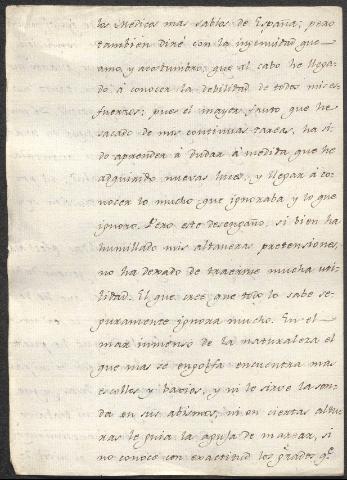 los Medicos mas sabios de España; pero
tambien diré con la ingenuidad que
amo, y acostumbro, que al cabo he llega-
do á conocer la debilidad de todos mis es-
fuerzos; pues el mayor fruto que he
sacado de mis continuas tareas, ha si-
do aprender á dudar á medida que he
adquirido nuevas luces, y llegar á co-
nocer lo mucho que ignoraba y lo que
ignoro. Pero este desengaño, si bien ha
humillado mis altaneras pretensiones,
no ha dexado de traerme mucha uti-
lidad. El que cree que todo lo sabe se-
guramente ignora mucho. En el
mar inmenso de la naturaleza el
que mas se engolfa encuentra mas
escollos y baxios, y ni le sirve la son-
da en sus abismos, ni en ciertas altu-
ras le guia la aguja de marear, si
no conoce con exactitud los grados q.e